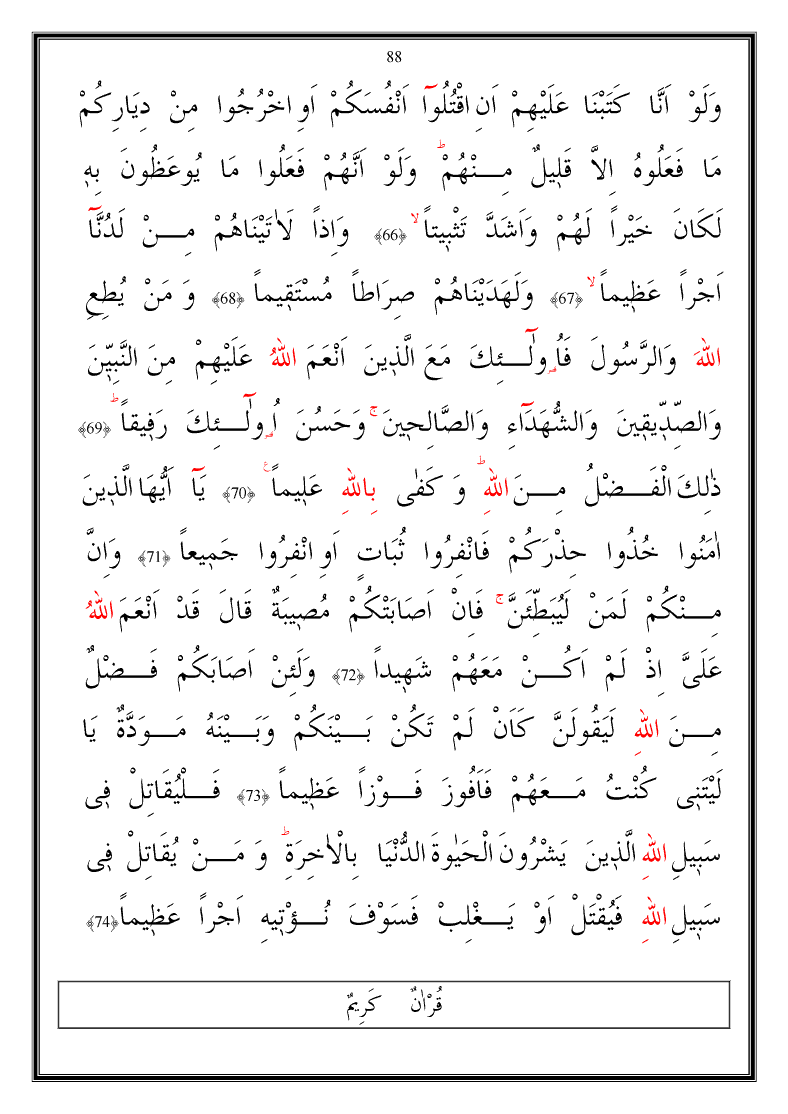 88
وَلَوْ اَنَّا كَتَبْنَا عَلَيْهِمْ اَنِ اقْتُلُوٓا اَنْفُسَكُمْ اَوِ اخْرُجُوا مِنْ دِيَارِكُمْ
مَا فَعَلُوهُ اِلاَّ قَلٖيلٌ مِـــنْهُمْ ؕ وَلَوْ اَنَّهُمْ فَعَلُوا مَا يُوعَظُونَ بِهٖ
لَكَانَ خَيْراً لَهُمْ وَاَشَدَّ تَثْبٖيتاً ۙ ﴿66﴾ وَاِذاً لَاٰتَيْنَاهُمْ مِـــنْ لَدُنَّٓا
اَجْراً عَظٖيماً ۙ ﴿67﴾ وَلَهَدَيْنَاهُمْ صِرَاطاً مُسْتَقٖيماً ﴿68﴾ وَ مَنْ يُطِعِ
اللهَ وَالرَّسُولَ فَاُو۬لٰٓـــئِكَ مَعَ الَّذٖينَ اَنْعَمَ اللهُ عَلَيْهِمْ مِنَ النَّبِيّٖنَ
وَالصِّدّٖيقٖينَ وَالشُّهَدَٓاءِ وَالصَّالِحٖينَ ۚ وَحَسُنَ اُو۬لٰٓـــئِكَ رَفٖيقاً ؕ ﴿69﴾
ذٰلِكَ الْفَـــضْلُ مِـــنَ اللهِ ؕ وَ كَفٰى بِاللهِ عَلٖيماً ࣖ ﴿70﴾ يَٓا اَيُّهَا الَّذٖينَ
اٰمَنُوا خُذُوا حِذْرَكُمْ فَانْفِرُوا ثُبَاتٍ اَوِ انْفِرُوا جَمٖيعاً ﴿71﴾ وَاِنَّ
مِـــنْكُمْ لَمَنْ لَيُبَطِّئَنَّ ۚ فَاِنْ اَصَابَتْكُمْ مُصٖيبَةٌ قَالَ قَدْ اَنْعَمَ اللهُ
عَلَىَّ اِذْ لَمْ اَكُـــنْ مَعَهُمْ شَهٖيداً ﴿72﴾ وَلَئِنْ اَصَابَكُمْ فَـــضْلٌ
مِـــنَ اللهِ لَيَقُولَنَّ كَاَنْ لَمْ تَكُنْ بَـــيْنَكُمْ وَبَـــيْنَهُ مَـــوَدَّةٌ يَا
لَيْتَنٖى كُنْتُ مَـــعَهُمْ فَاَفُوزَ فَـــوْزاً عَظٖيماً ﴿73﴾ فَـــلْيُقَاتِلْ فٖى
سَبٖيلِ اللهِ الَّذٖينَ يَشْرُونَ الْحَيٰوةَ الدُّنْيَا بِالْاٰخِرَةِ ؕ وَ مَـــنْ يُقَاتِلْ فٖى
سَبٖيلِ اللهِ فَيُقْتَلْ اَوْ يَـــغْلِبْ فَسَوْفَ نُـــؤْتٖيهِ اَجْراً عَظٖيماً ﴿74﴾
قُرْاٰنٌ كَرِيمٌ